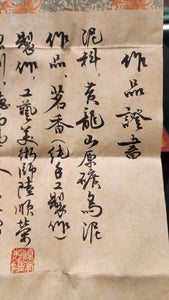 作品證書
泥料，黃龍山原礦烏泥
作品，茗香(純手工製作)
製作，工藝美術師陸順榮